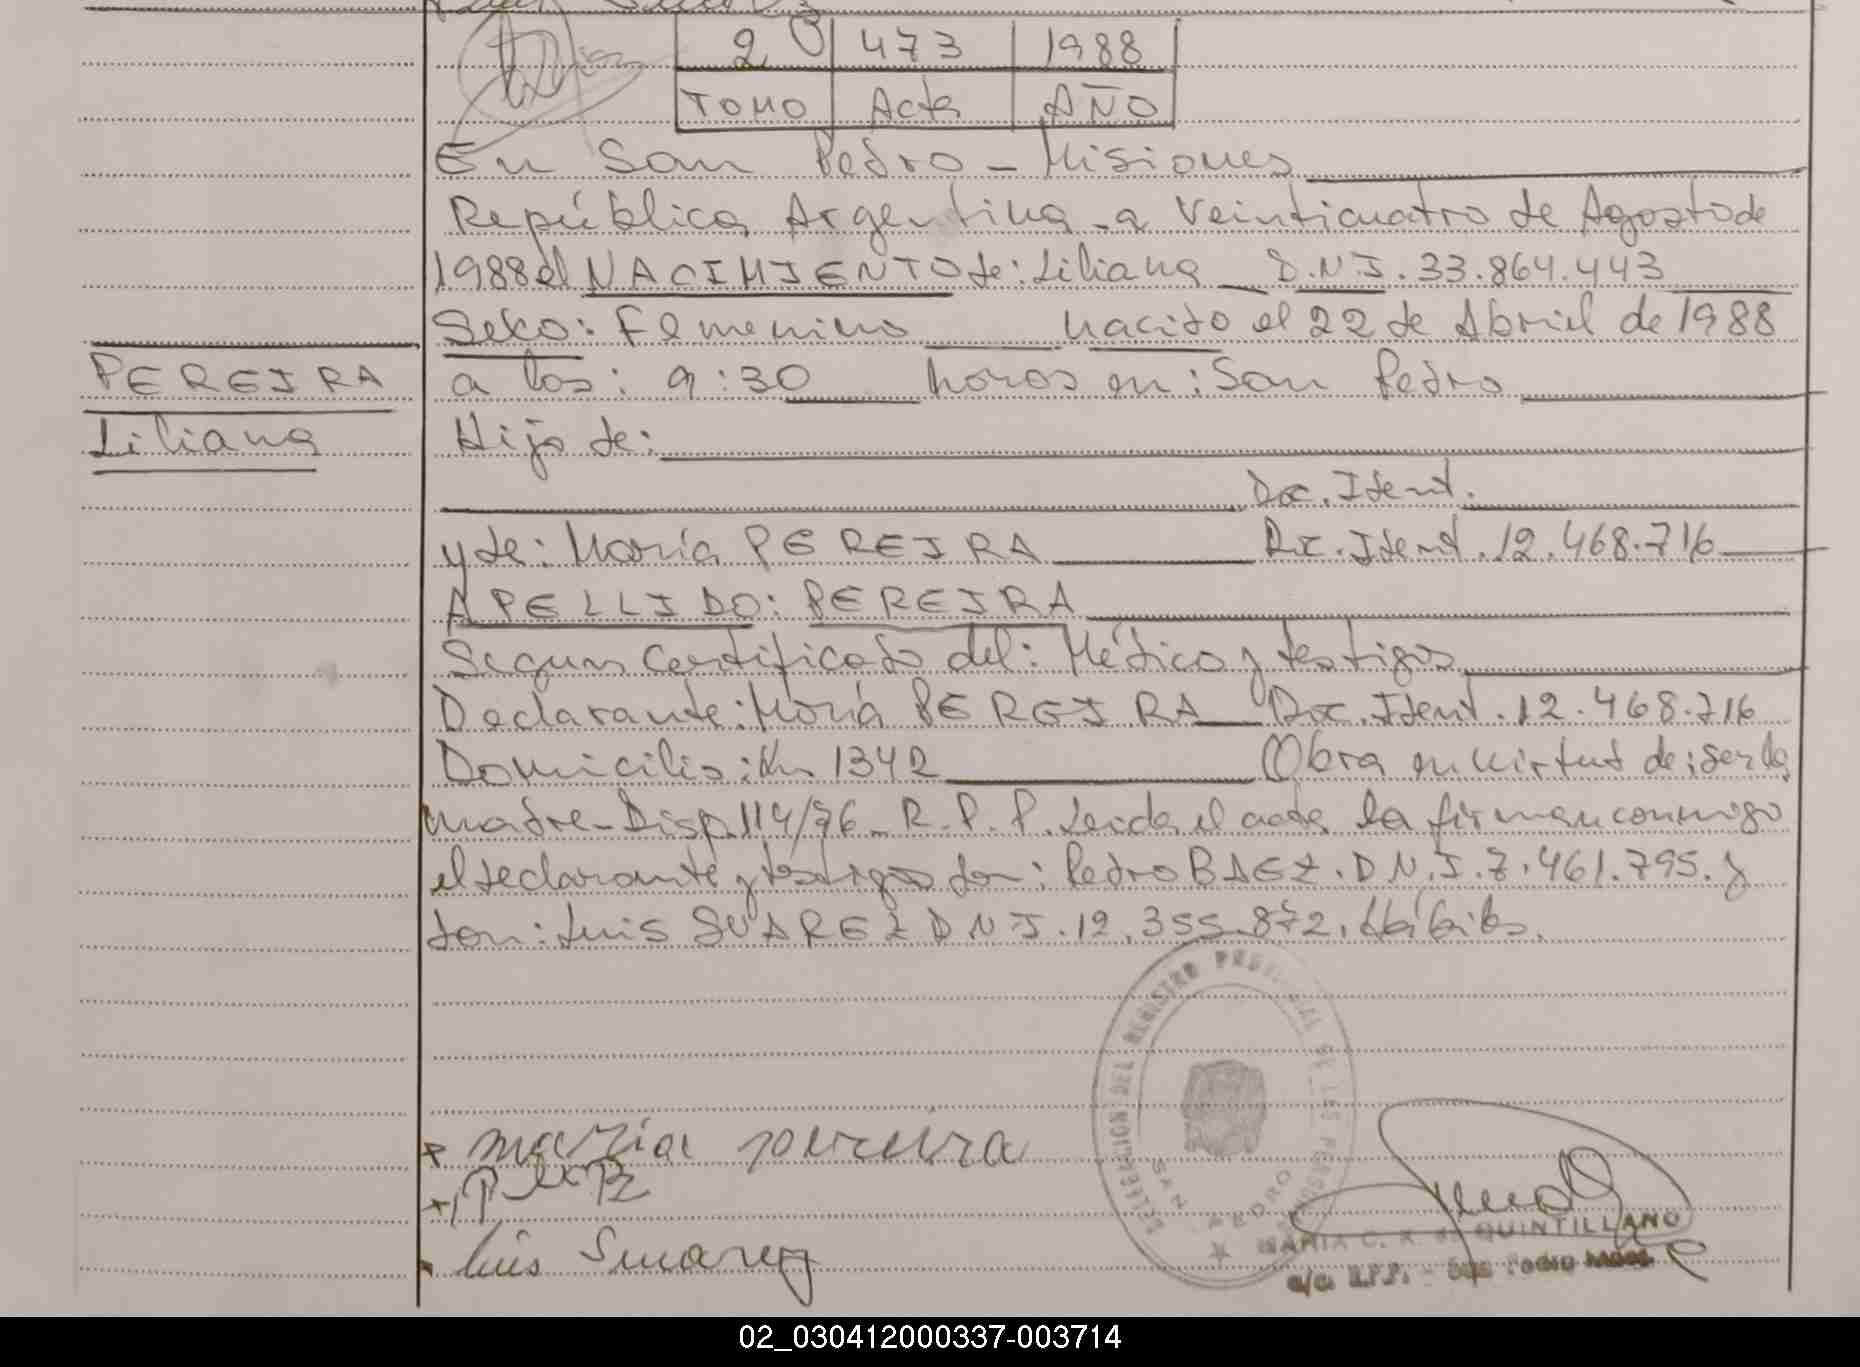 2 473 1988
TOMO Acta AÑO
En San Pedro - Misiones
República Argentina a Veinticuatro de Agosto de
1988 el NACIMIENTO de: Liliana D.N.I. 33.864.443
Sexo: Femenino nacido el 22 de Abril de 1988
PEREIRA
a las: 9:30 horas en: San Pedro
Liliana
Hijo de:
Doc. Ident.
y de: María PEREIRA Doc. Ident. 12.468.716
APELLIDO: PEREIRA
Segun Certificado del: Médico y testigos
Declarante: María PEREIRA Doc. Ident. 12.468.716
Domicilio: Km 1342 Obra en virtud de: ser la
madre - Disp. 114/76 - R.P.P. Leida el acta la firman conmigo
el declarante y testigos don: Pedro BAEZ. D.N.I. 7.461.795. y
don: Luis SUAREZ D N I. 12.355.872.
maria pereira
Luis Suarez
DELEGACION DEL REGISTRO PROVINCIAL DE LAS PERSONAS
SAN PEDRO
MARIA C. R. de QUINTILLANO
a/c. R.P.P. - San Pedro Mnes.
02_030412000337-003714